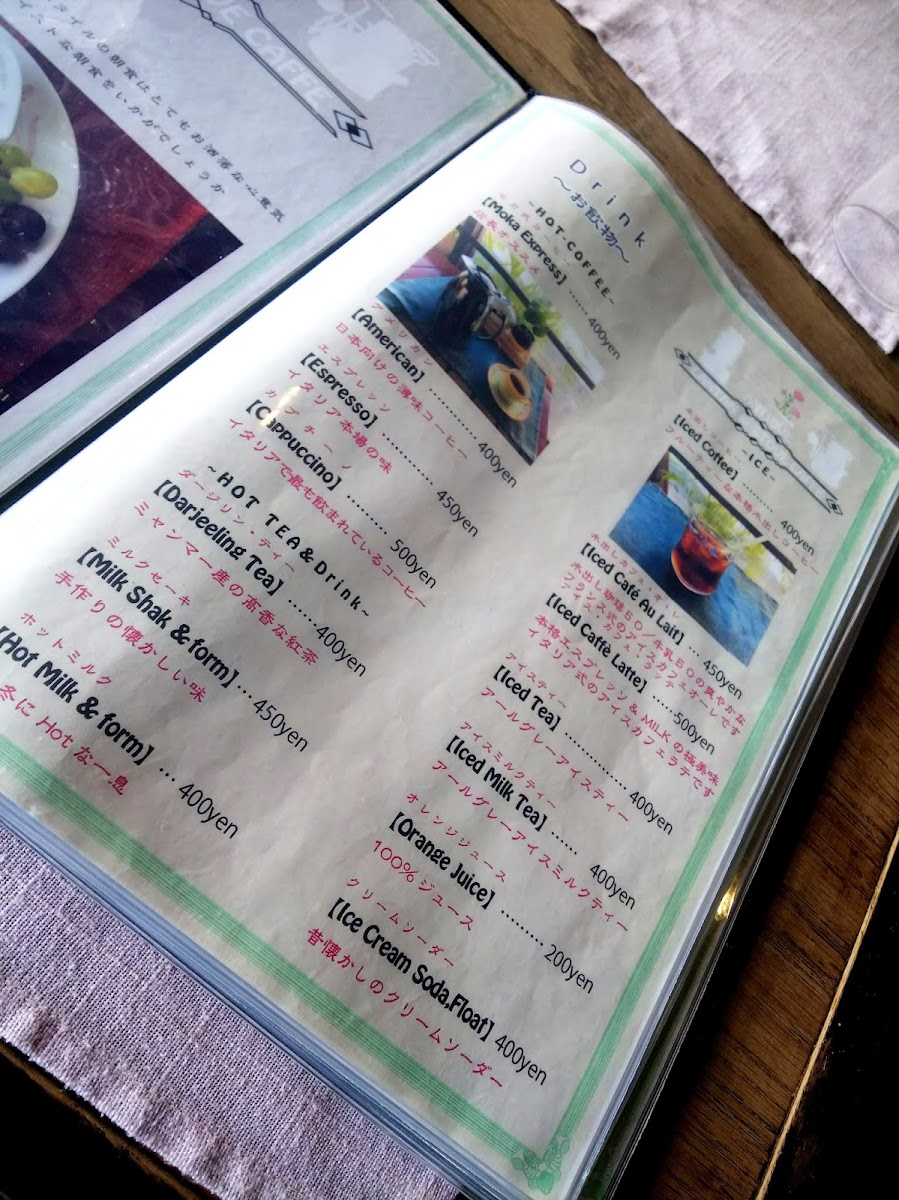 UE CAFFE
タイルの朝食はとてもお洒落な
イストな朝食をいかがでしょうか
Drink
～お飲物～
~HOT COFFEE~
【Moka Express】 ...... 400yen
店長オススメ
アメリカン
【American】 ............ 400yen
日本向けの薄味コーヒー
エスプレッソ
【Espresso】 ............ 450yen
イタリア本場の味
カプチーノ
【Cappuccino】 ......... 500yen
イタリアで最も飲まれているコーヒー
~HOT TEA & Drink~
ダージリンティー
【Darjeeling Tea】 ......400yen
ミャンマー産の高香な紅茶
ミルクセーキ
【Milk Shak & form】 ... 450yen
手作りの懐かしい味
ホットミルク
【Hot Milk & form】 .... 400yen
冬に Hot な一息
~ICE~
水出しコーヒー
【Iced Coffee】 ......... 400yen
フルーティーな本格水出しコーヒー
水出しカフェオーレ
【Iced Café Au Lait】 ... 450yen
水出し珈琲50/牛乳50の爽やかな
フランス式のアイスカフェオーレです
アイスカフェラテ
【Iced Caffè Latte】 ......500yen
本格エスプレッソ & MILK の極勇味
イタリア式のアイスカフェラテです
アイスティー
【Iced Tea】 ............... 400yen
アールグレーアイスティー
アイスミルクティー
【Iced Milk Tea】 ...... 400yen
アールグレーアイスミルクティー
オレンジジュース
【Orange Juice】 ......... 200yen
100%ジュース
クリームソーダー
【Ice Cream Soda,Float】 400yen
昔懐かしのクリームソーダー